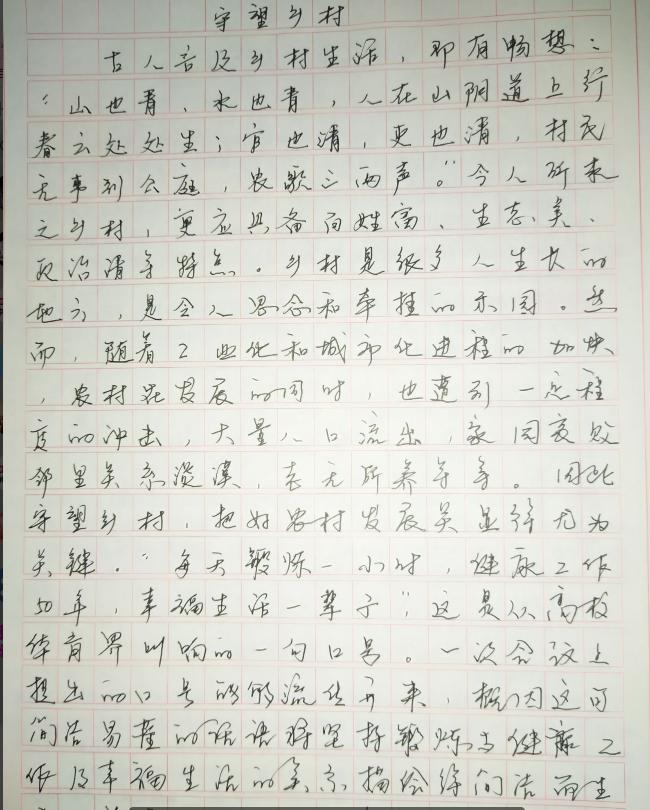 守望乡村
古人言及乡村生活，即有畅想：
“山也青，水也青，人在山阴道上行
春云处处生；官也清，吏也清，村民
无事到公庭，农歌三两声。”今人所求
之乡村，更应具备百姓富、生态美、
政治清等特点。乡村是很多人生长的
地方，是令人思念和牵挂的乐园。然
而，随着工业化和城市化进程的加快
，农村在发展的同时，也遭到一定程
度的冲击，大量人口流出，家园衰败
邻里关系淡漠，老无所养等等。因此
守望乡村，把好农村发展关显得尤为
关键。“每天锻炼一小时，健康工作
50年，幸福生活一辈子”，这是从高校
体育界叫响的一句口号。一次会议上
提出的口号能够流传开来，概因这句
简洁易懂的话语将坚持锻炼与健康工
作及幸福生活的关系描绘得简洁而生